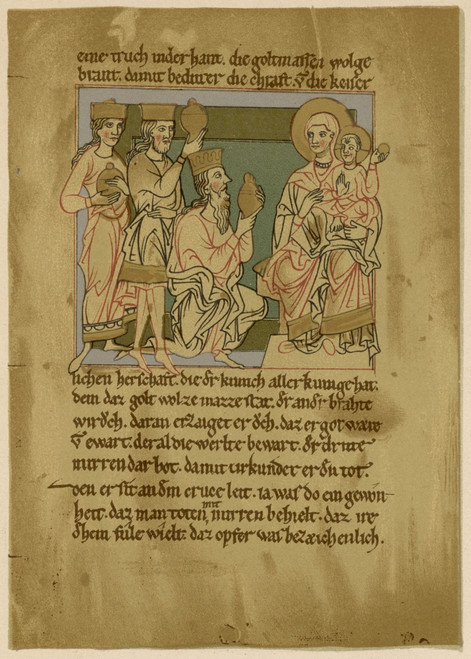 eine truch inder hant. die goltmassen wolge
brant. damit bediuter die chraft. v̄ die keiser
lichen herschaft. die dr kunich aller kunige hat.
dem daz golt wol ze mazze stat. dr andr brahte
wirǒch. daran erzaiget er ǒch. daz er got wære
v̄ ewart. der al die werlte bewart. dr drite
mirren dar bot. damit urkunder er dn tot.
den er sit an dm cruce leit. ia was do ein gewon
heit. daz man toten mit mirren behielt. daz ir
dhein fule wielt. daz opfer was bezæichenlich.